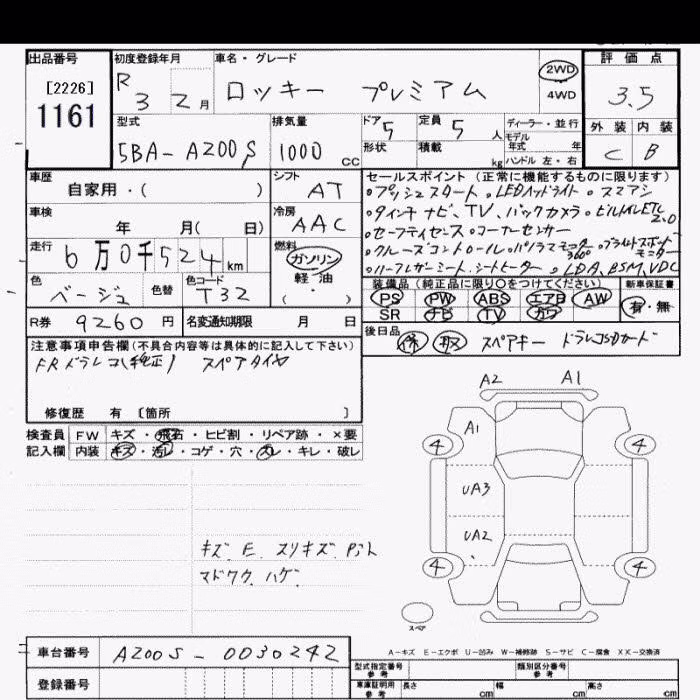 出品番号
[2226]
1161
初度登録年月
R 3 2月
車名・グレード
ロッキー プレミアム
2WD
4WD
評価点
3.5
外装 内装
C B
型式
5BA-A200S
排気量
1000 CC
ドア 5
定員 5 人
形状
積載 kg
ディーラー・並行
モデル
年式 年
ハンドル 左・右
車歴
自家用・( )
シフト
AT
車検
年 月( 日)
冷房
AAC
走行
6万0千524 km
燃料
ガソリン
軽・油
( ・ )
色
ベージュ
色替
色コード
T32
R券 9260円
名変通知期限 月 日
セールスポイント(正常に機能するものに限ります)
・プッシュスタート ・LEDヘッドライト ・スマアシ
・9インチナビ、TV、バックカメラ ・ビルトインETC2.0
・セーフティセンス ・コーナーセンサー
・クルーズコントロール ・パノラマモニター 360° ・ブラインドスポットモニター
・ハーフレザーシート、シートヒーター ・LDA、BSM、VDC
装備品(純正品に限り○をつけてください)
PS PW ABS エアB AW
SR ナビ TV カワ
新車保証書
有・無
後日品
保 取 スペアキー ドラレコSDカード
注意事項申告欄(不具合内容等は具体的に記入して下さい)
FRドラレコ(純正) スペアタイヤ
修復歴 有 〔箇所 〕
検査員
記入欄
FW キズ・飛石・ヒビ割・リペア跡・×要
内装 キズ・汚レ・コゲ・穴・スレ・キレ・破レ
キズ E スリキズ
マドワク ハゲ
A2 A1
A1
4 4
UA3
UA2
4 4
スペア
A-キズ E-エクボ U-凹み W-補修跡 S-サビ C-腐食 XX-交換済
車台番号 A200S-0030242
登録番号
型式指定番号
参考
類別区分番号
参考
車庫証明用
参考
長さ cm 幅 cm 高さ cm